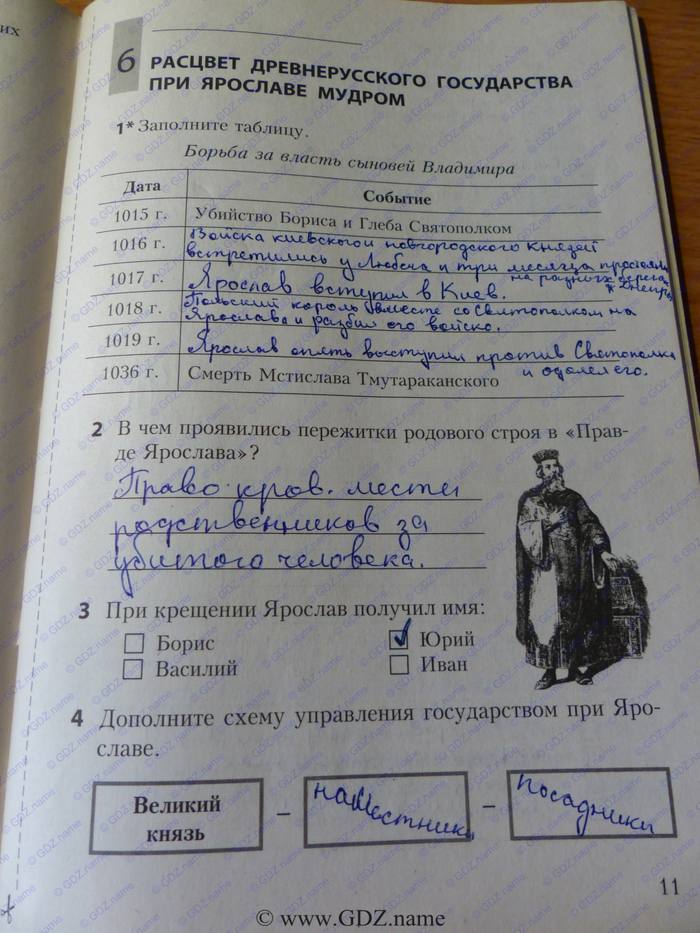 их
6
РАСЦВЕТ ДРЕВНЕРУССКОГО ГОСУДАРСТВА
ПРИ ЯРОСЛАВЕ МУДРОМ
1* Заполните таблицу.
Борьба за власть сыновей Владимира
Дата Событие
1015 г. Убийство Бориса и Глеба Святополком
1016 г. Войска киевского и новгородского князей
встретились у Любеча и три месяца простояли
на разных берегах
Днепра
1017 г. Ярослав вступил в Киев.
1018 г. Польский король вместе со Святополком на
Ярослава и разбил его войско.
1019 г. Ярослав опять выступил против Святополка
и одолел его.
1036 г. Смерть Мстислава Тмутараканского
2 В чем проявились пережитки родового строя в «Прав-
де Ярослава»?
Право кров. мести
родственников за
убитого человека.
3 При крещении Ярослав получил имя:
Борис Юрий
Василий Иван
4 Дополните схему управления государством при Яро-
славе.
Великий
князь – наместники – посадники
11
© www.GDZ.name